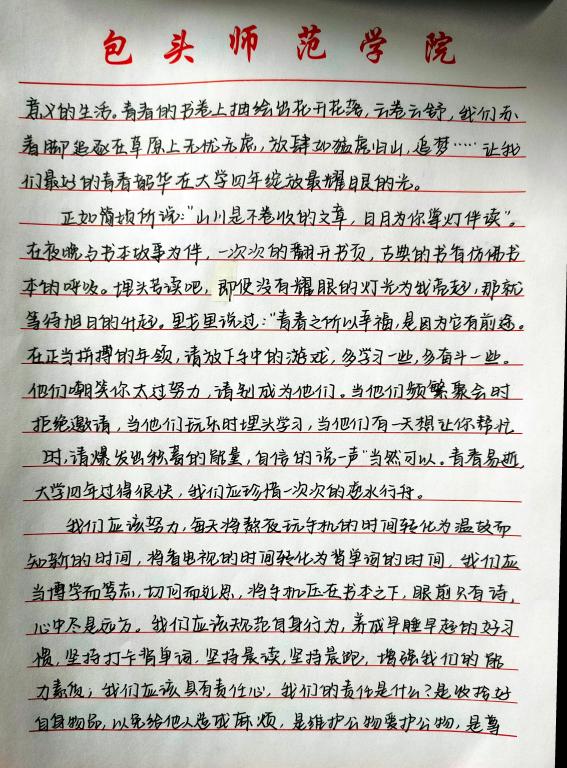 包头师范学院
意义的生活。青春的书卷上抽绘出花开花落,云卷云舒,我们赤
着脚追逐在草原上无忧无虑,放肆如猛虎归山,追梦……让我
们最好的青春韶华在大学四年绽放最耀眼的光。
正如简媜所说:"山川是不卷收的文章,日月为你掌灯伴读"。
在夜晚与书本故事为伴,一次次的翻开书页,古典的书有仿佛书
本的呼吸。埋头苦读吧,即便没有耀眼的灯光为我亮起,那就
等待旭日的升起。里戈里说过:"青春之所以幸福,是因为它有前途。
在正当拼搏的年领,请放下手中的游戏,多学习一些,多奋斗一些。
他们嘲笑你太过努力,请别成为他们。当他们频繁聚会时
拒绝邀请,当他们玩乐时埋头学习,当他们有一天想让你帮忙
时,请爆发出独毒的能量,自信的说一声"当然可以。青春易逝,
大学四年过得很快,我们应珍惜一次次的恋水行舟。
我们应该努力,每天将熬夜玩手机的时间转化为温故而
知新的时间,将看电视的时间转化为背单词的时间,我们应
当博学而笃志,切问而近思,将手机压在书本之下,眼前只有诗,
心中尽是远方。我们应该规范自身行为,养成早睡早起的好习
惯,坚持打卡背单词,坚持晨读,坚持晨跑,增强我们的能
力素质;我们应该具有责任心,我们的责任是什么?是收拾好
自身物品,以免给他人造成麻烦,是维护公物爱护公物,是尊